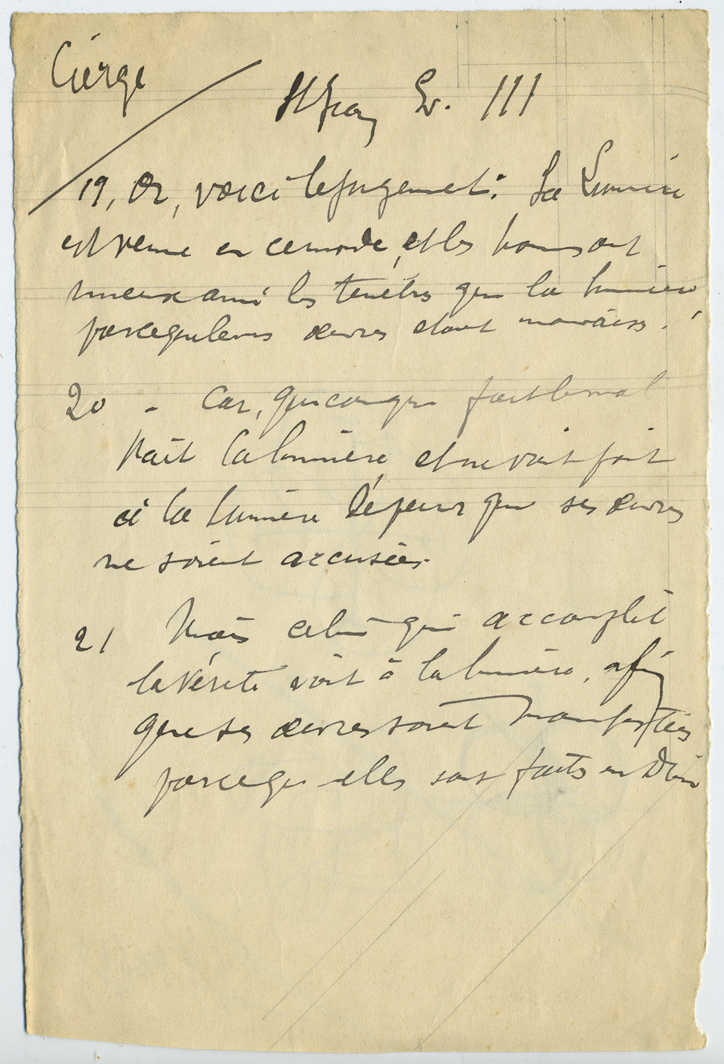 Cierge
St Jean Ev. III
19, Or, voici le jugement : La Lumière
est venue en ce monde, et les hommes ont
mieux aimé les ténèbres que la lumière
parceque leurs œuvres étaient mauvaises.
20 - Car, quiconque fait le mal
hait la lumière et ne vait point
à la lumière de peur que ses œuvres
ne soient accusées.
21 Mais celui qui accomplit
la vérité vient à la lumière, afin
que ses œuvres soient manifestées
parceque elles sont faites en Dieu